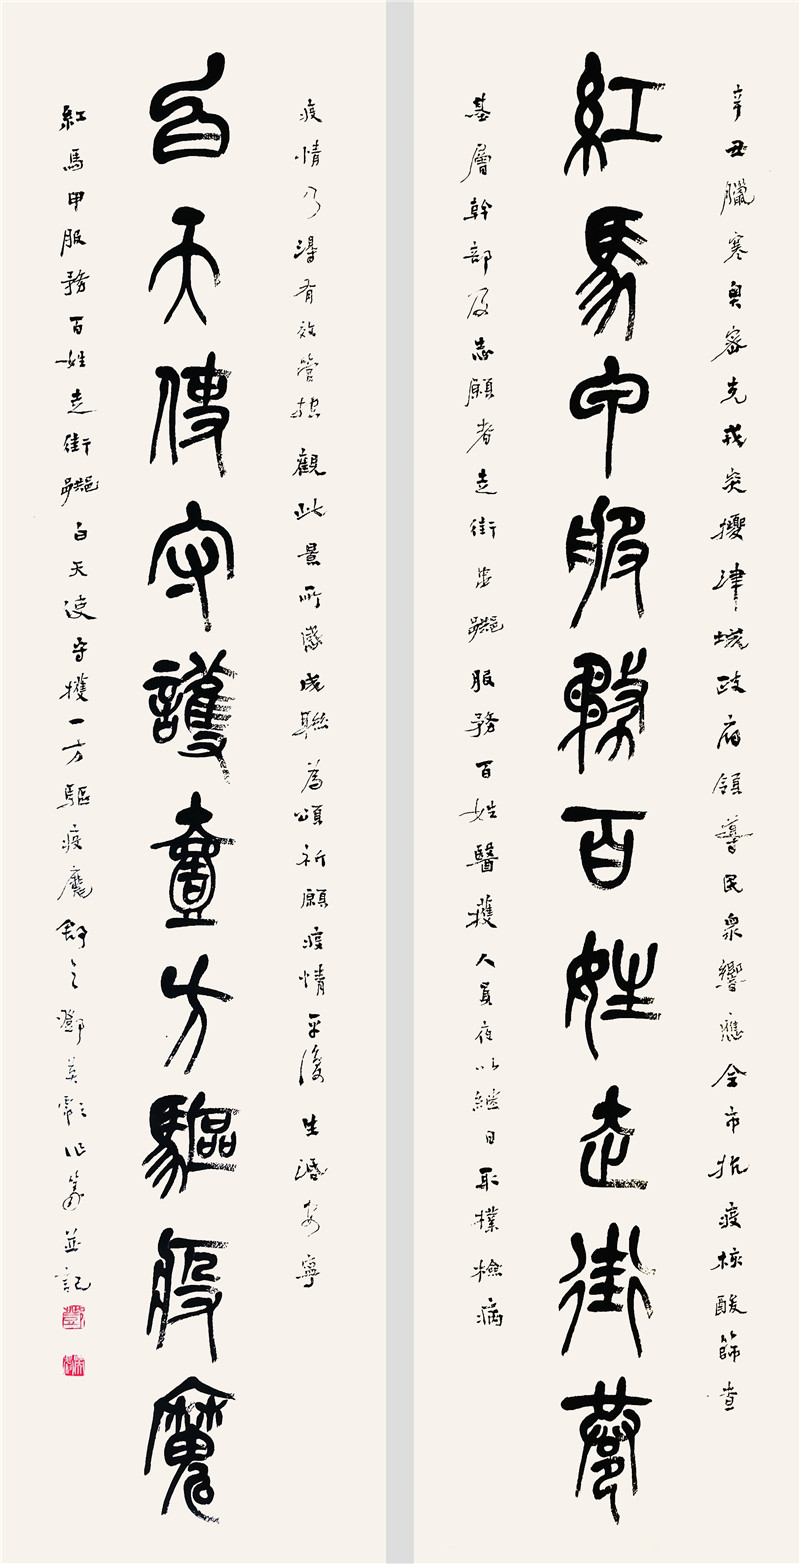 辛丑臘寒奥密克戎突擾津城政府領導民衆響應全市抗疫核酸篩查
紅馬甲服務百姓走街巷
基層幹部及志願者走街巷服務百姓醫護人員夜以繼日取樣檢病
疫情乃得有效管控觀此景所感成聯為頌祈願疫情平復生活安寧
白天使守護壹方驅疫魔
紅馬甲服務百姓走街巷白天使守護一方驅疫魔舒之鄧英作篆並記